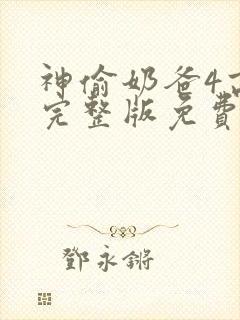 神偷奶爸4高
完整版免費
鄧永鏘